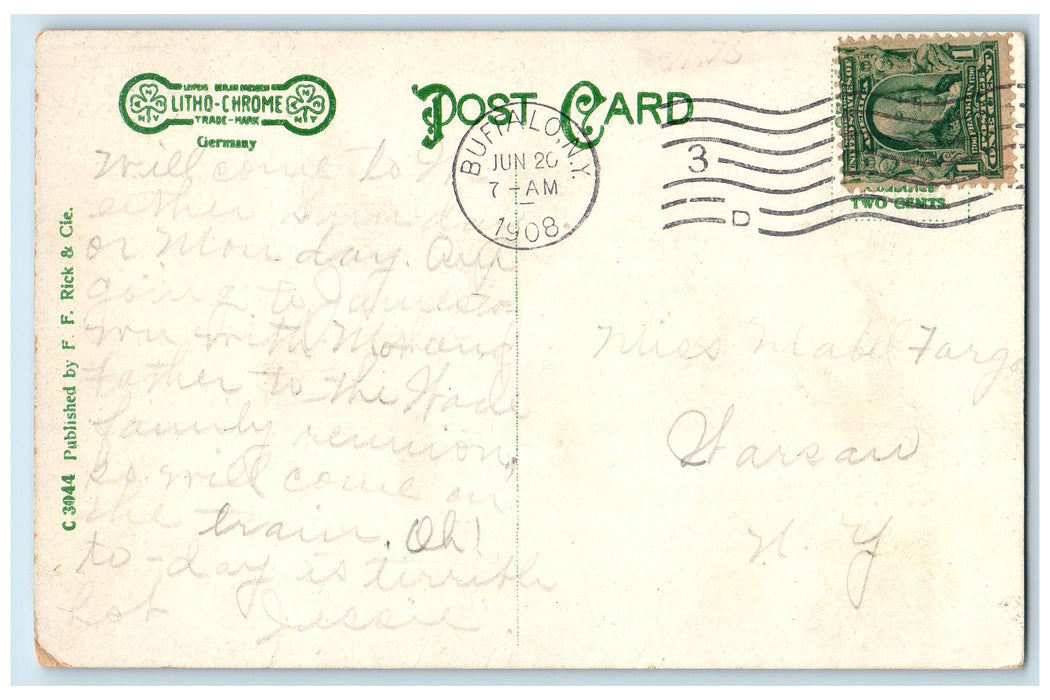 31.75
LEIPZIG BERLIN DRESDEN
LITHO-CHROME
TRADE-MARK
N Y
N Y
Germany
POST CARD
BUFFALO, N.Y.
JUN 20
7-AM
1908
3
D
UNITED STATES OF AMERICA
1 ONE CENT 1
TWO CENTS.
C 3044 Published by F. F. Rick & Cie.
Will come to
either Sunday
or Monday. Am
going to Jamesto-
wn with Mo. and
father to the Wade
family reunion,
so will come on
the train. Oh!
to-day is terrible
hot Jessie
Miss Mabel Fargo
Warsaw
N. Y